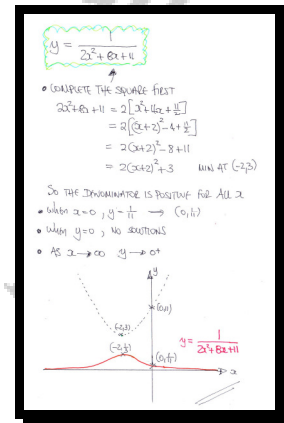 y = 1/(2x²+8x+11)
• COMPLETE THE SQUARE FIRST
2x²+8x+11 = 2[x²+4x+11/2]
= 2[(x+2)²-4+11/2]
= 2(x+2)²-8+11
= 2(x+2)²+3 MIN AT (-2,3)
SO THE DENOMINATOR IS POSITIVE FOR ALL x
• WHEN x=0, y=1/11 → (0,1/11)
• WHEN y=0, NO SOLUTIONS
• AS x→∞ y→0⁺
y
(0,11)
(-2,3)
y = 1/(2x²+8x+11)
(-2,1/3)
(0,1/11)
x